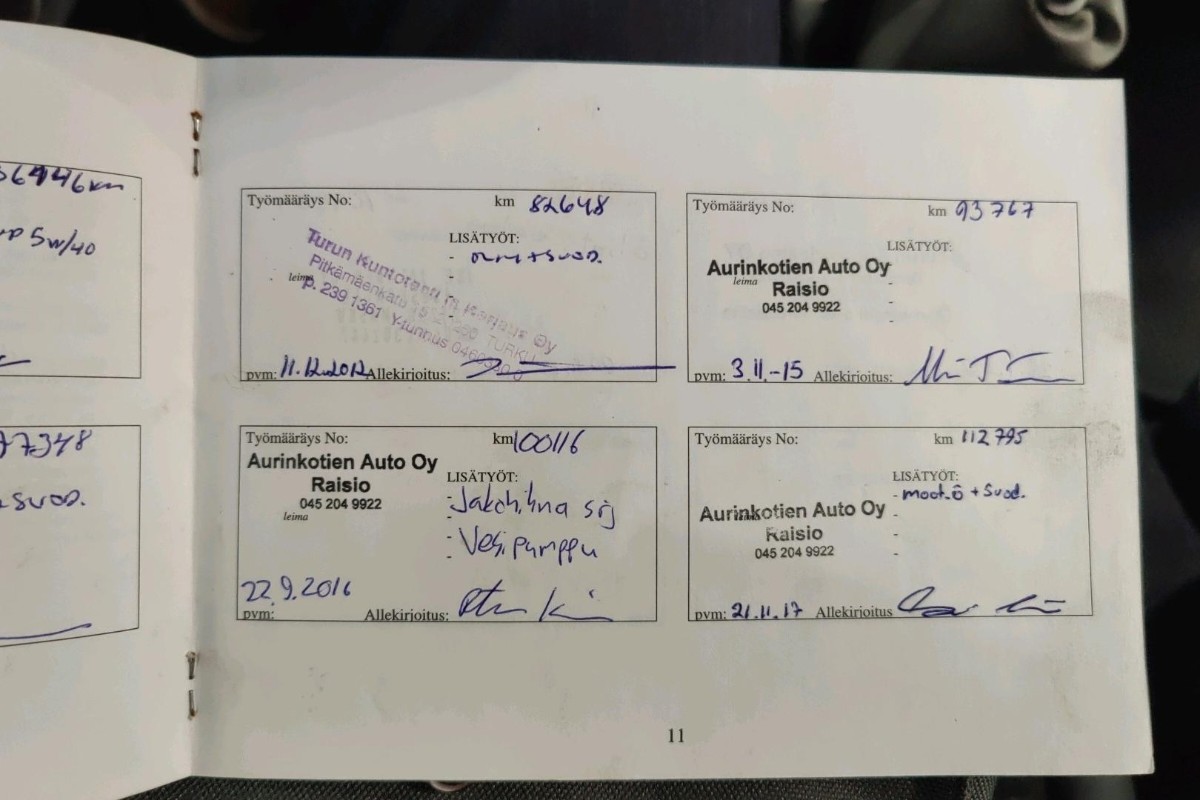 6446km
5W/40
77348
+ suod.
Työmääräys No: km 82648
LISÄTYÖT:
- öljy + suod.
-
Turun Kuntotesti ja Korjaus Oy
Pitkämäenkatu TURKU
leima
p. 239 1361 Y-tunnus
pvm: 11.12.2012 Allekirjoitus:
Työmääräys No: km 93 767
LISÄTYÖT:
Aurinkotien Auto Oy
leima
Raisio
045 204 9922
-
-
pvm: 3.11.-15 Allekirjoitus:
Työmääräys No: km 100116
Aurinkotien Auto Oy
Raisio
045 204 9922
leima
LISÄTYÖT:
- Jakohihna srj
-
- Vesipumppu
22.9.2016
pvm: Allekirjoitus:
Työmääräys No: km 112 795
LISÄTYÖT:
- moot.ö + Suod.
Aurinkotien Auto Oy
leima
Raisio
045 204 9922
-
-
pvm: 21.11.17 Allekirjoitus
11